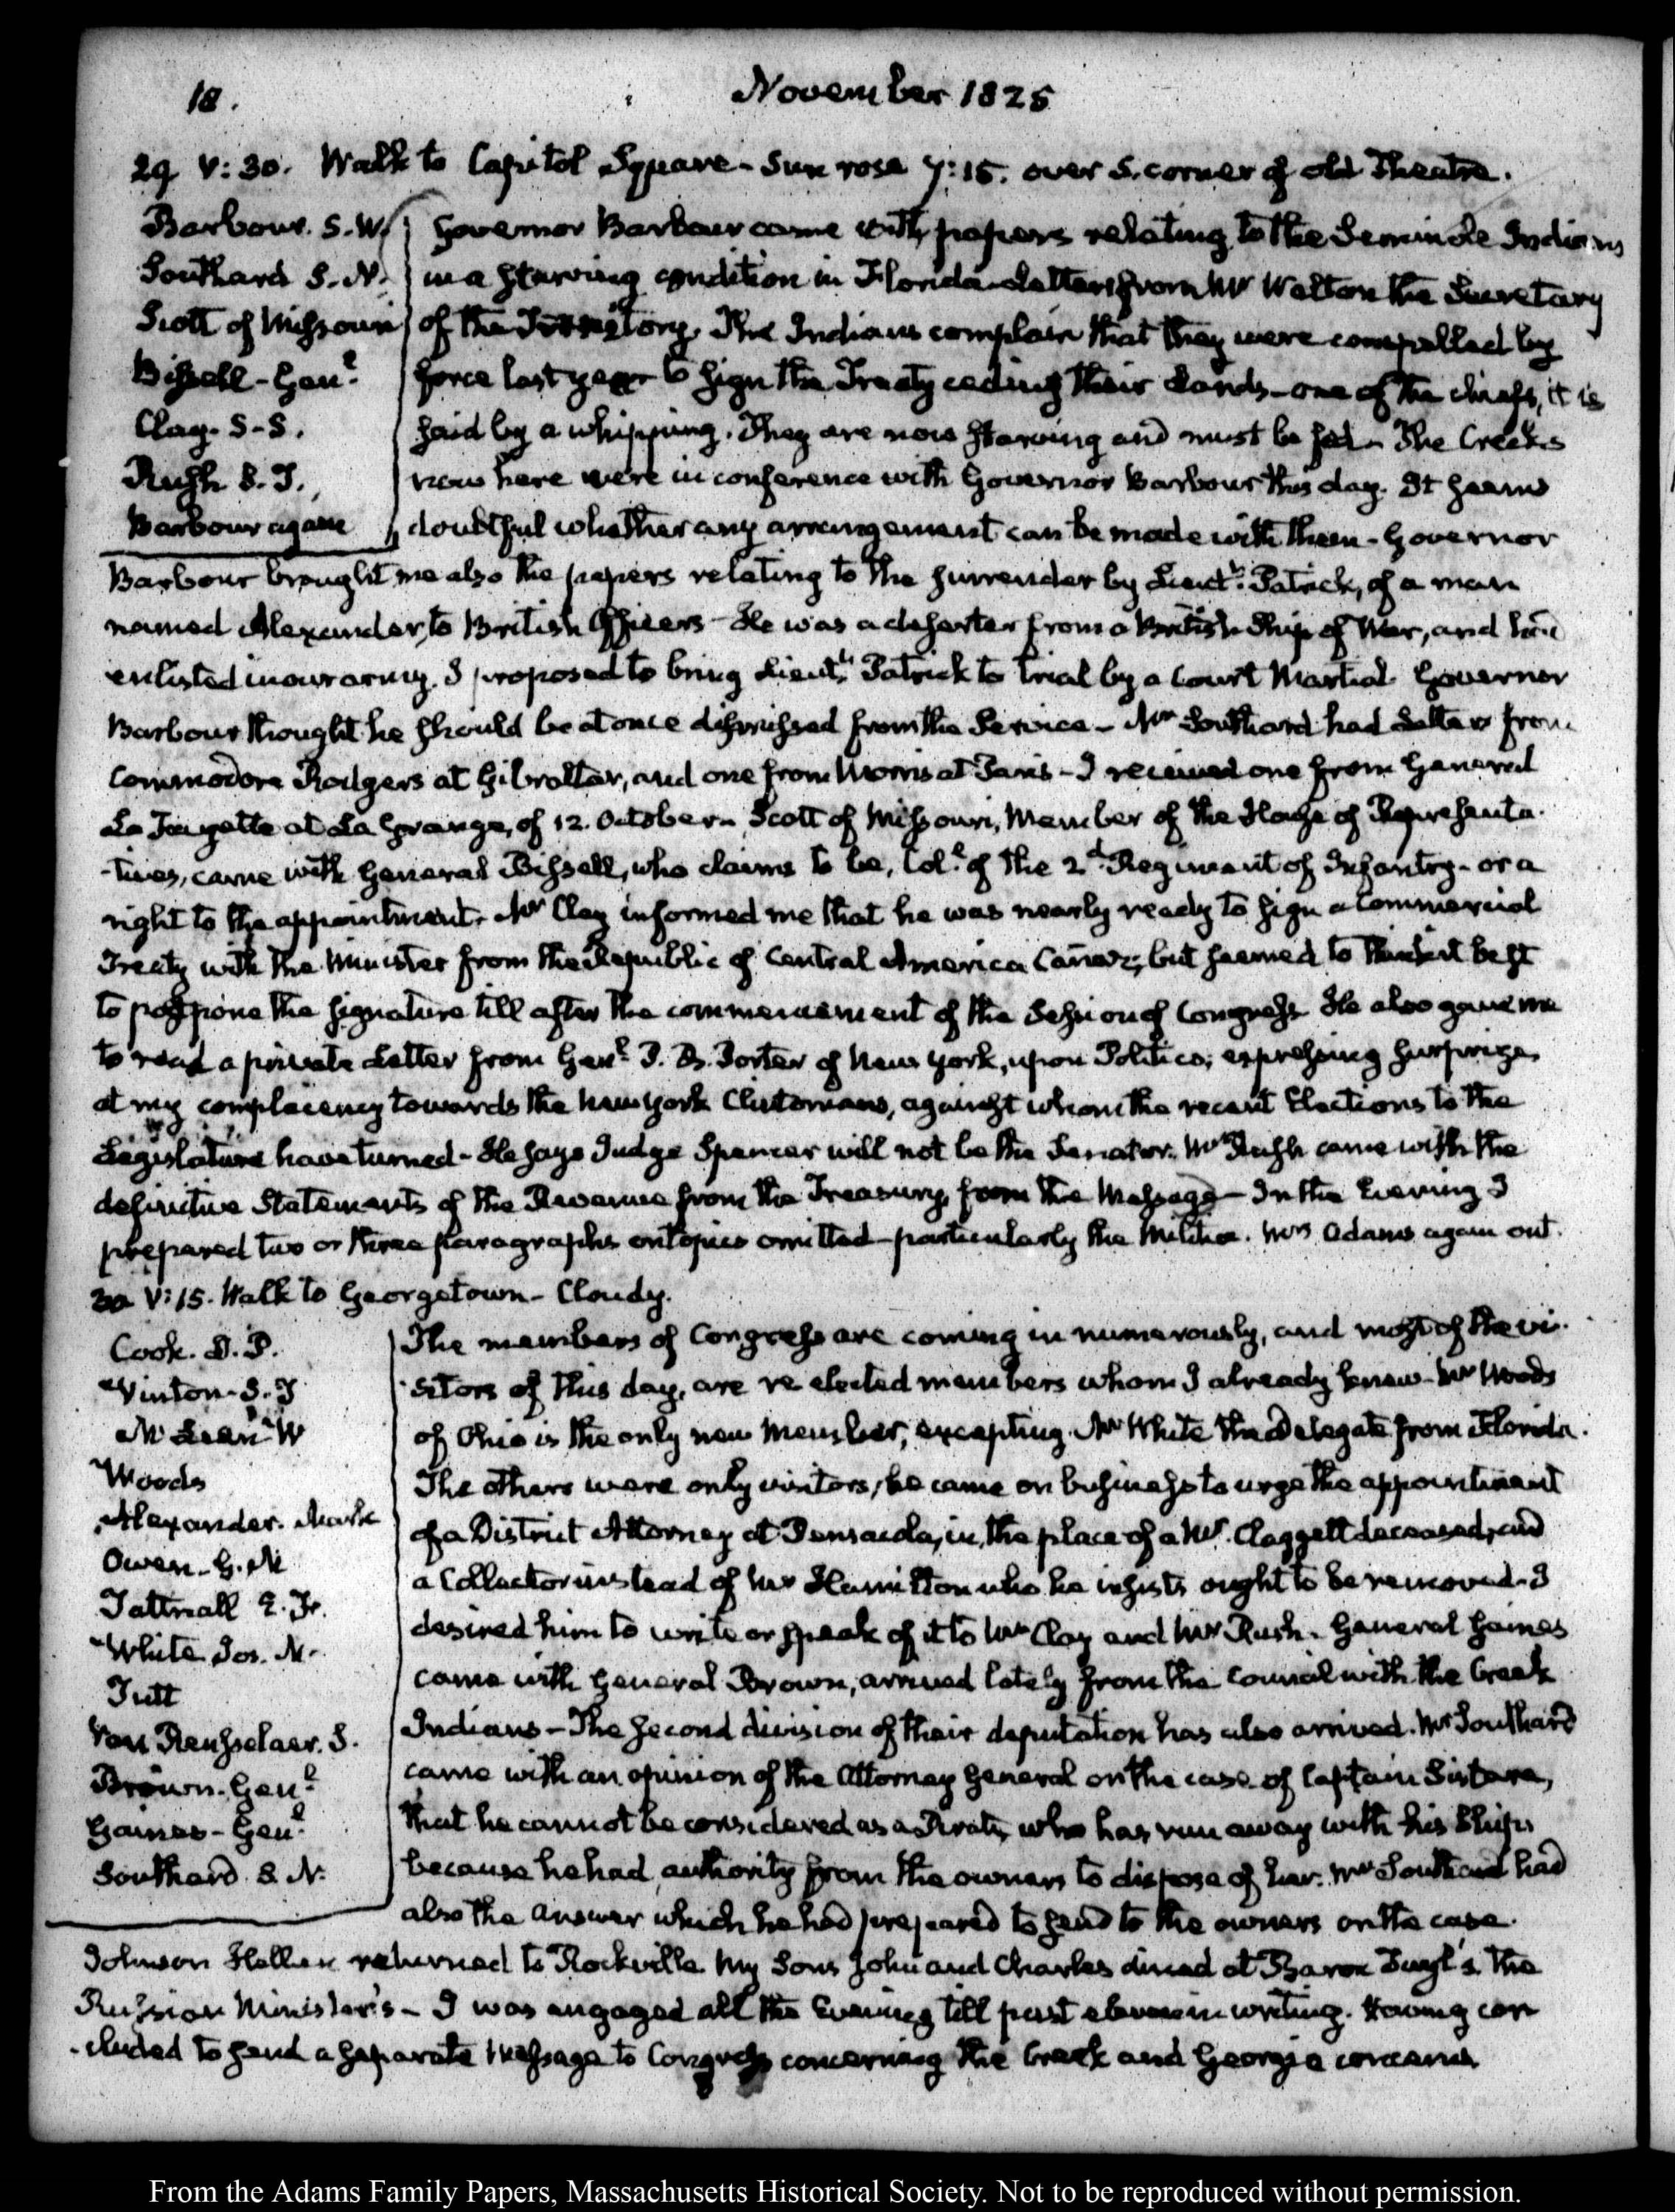 18.
November 1825
29 V:30. Walk to Capitol Square - Sun rose 7:15. over S. corner of old Theatre.
Barbour. S.W.
Southard S.N.
Scott of Missouri
Bissell - Genl.
Clay. S-S.
Rush S.T.
Barbour again
Governor Barbour came with papers relating to the Seminole Indians
in a starving condition in Florida - Letters from Mr Walton the Secretary
of the Territory. The Indians complain that they were compelled by
force last year to sign the Treaty ceding their Lands - one of the chiefs, it is
said by a whipping. They are now starving and must be fed - The Creeks
now here were in conference with Governor Barbour this day. It seems
doubtful whether any arrangement can be made with them - Governor
Barbour brought me also the papers relating to the surrender by Lieutt. Patrick, of a man
named Alexander, to British Officers - He was a deserter from a British Ship of War, and had
enlisted in our army. I proposed to bring Lieutt. Patrick to trial by a Court Martial. Governor
Barbour thought he should be at once dismissed from the Service - Mr Southard had Letters from
Commodore Rodgers at Gibraltar, and one from Morris at Paris - I received one from General
La Fayette at La Grange, of 12. October - Scott of Missouri, Member of the House of Representa-
-tives, came with General Bissell, who claims to be, Coll. of the 2d. Regiment of Infantry - or a
right to the appointment. Mr Clay informed me that he was nearly ready to sign a Commercial
Treaty with the Minister from the Republic of Central America Cañaz; but seemed to think it best
to postpone the signature till after the commencement of the Session of Congress. He also gave me
to read a private Letter from Genl. P. B. Porter of New York, upon Politics; expressing surprize
at my complacency towards the New York Clintonians, against whom the recent Elections to the
Legislature have turned - He says Judge Spencer will not be the Senator. Mr Rush came with the
definitive Statements of the Revenue from the Treasury, from the Message - In the Evening I
prepared two or three paragraphs on topics omitted - particularly the Militia. Mrs Adams again out.
30 V:15. Walk to Georgetown - Cloudy.
Cook. D.P.
Vinton - S.F
McLean W
Woods
Alexander. Mark
Owen - G. M
Tattnall E. F.
White Jos. M.
Tutt
Van Rensselaer. S.
Brown. Genl.
Gaines - Genl.
Southard S.N.
The members of Congress are coming in numerously, and most of the vi-
-sitors of this day, are re elected members whom I already knew - Mr Woods
of Ohio is the only new Member, excepting Mr White the Delegate from Florida.
The others were only visitors, he came on business to urge the appointment
of a District Attorney at Pensacola, in the place of a Mr. Claggett deceased, and
a Collector instead of Mr Hamilton who he insists ought to be removed - I
desired him to write or speak of it to Mr Clay and Mr Rush. General Gaines
came with General Brown, arrived lately from the Council with the Creek
Indians - The second division of their deputation has also arrived. Mr Southard
came with an opinion of the Attorney General on the case of Captain Sistare,
that he cannot be considered as a Pirate, who has run away with his Ship,
because he had authority from the owners to dispose of her. Mr Southard had
also the answer which he had prepared to send to the owners on the case.
Johnson Hellen returned to Rockville. My Sons John and Charles dined at Baron Tuyl's the
Russian Minister's - I was engaged all the Evening till past eleven in writing. Having con
-cluded to send a separate Message to Congress concerning the Creek and Georgia concerns
From the Adams Family Papers, Massachusetts Historical Society. Not to be reproduced without permission.